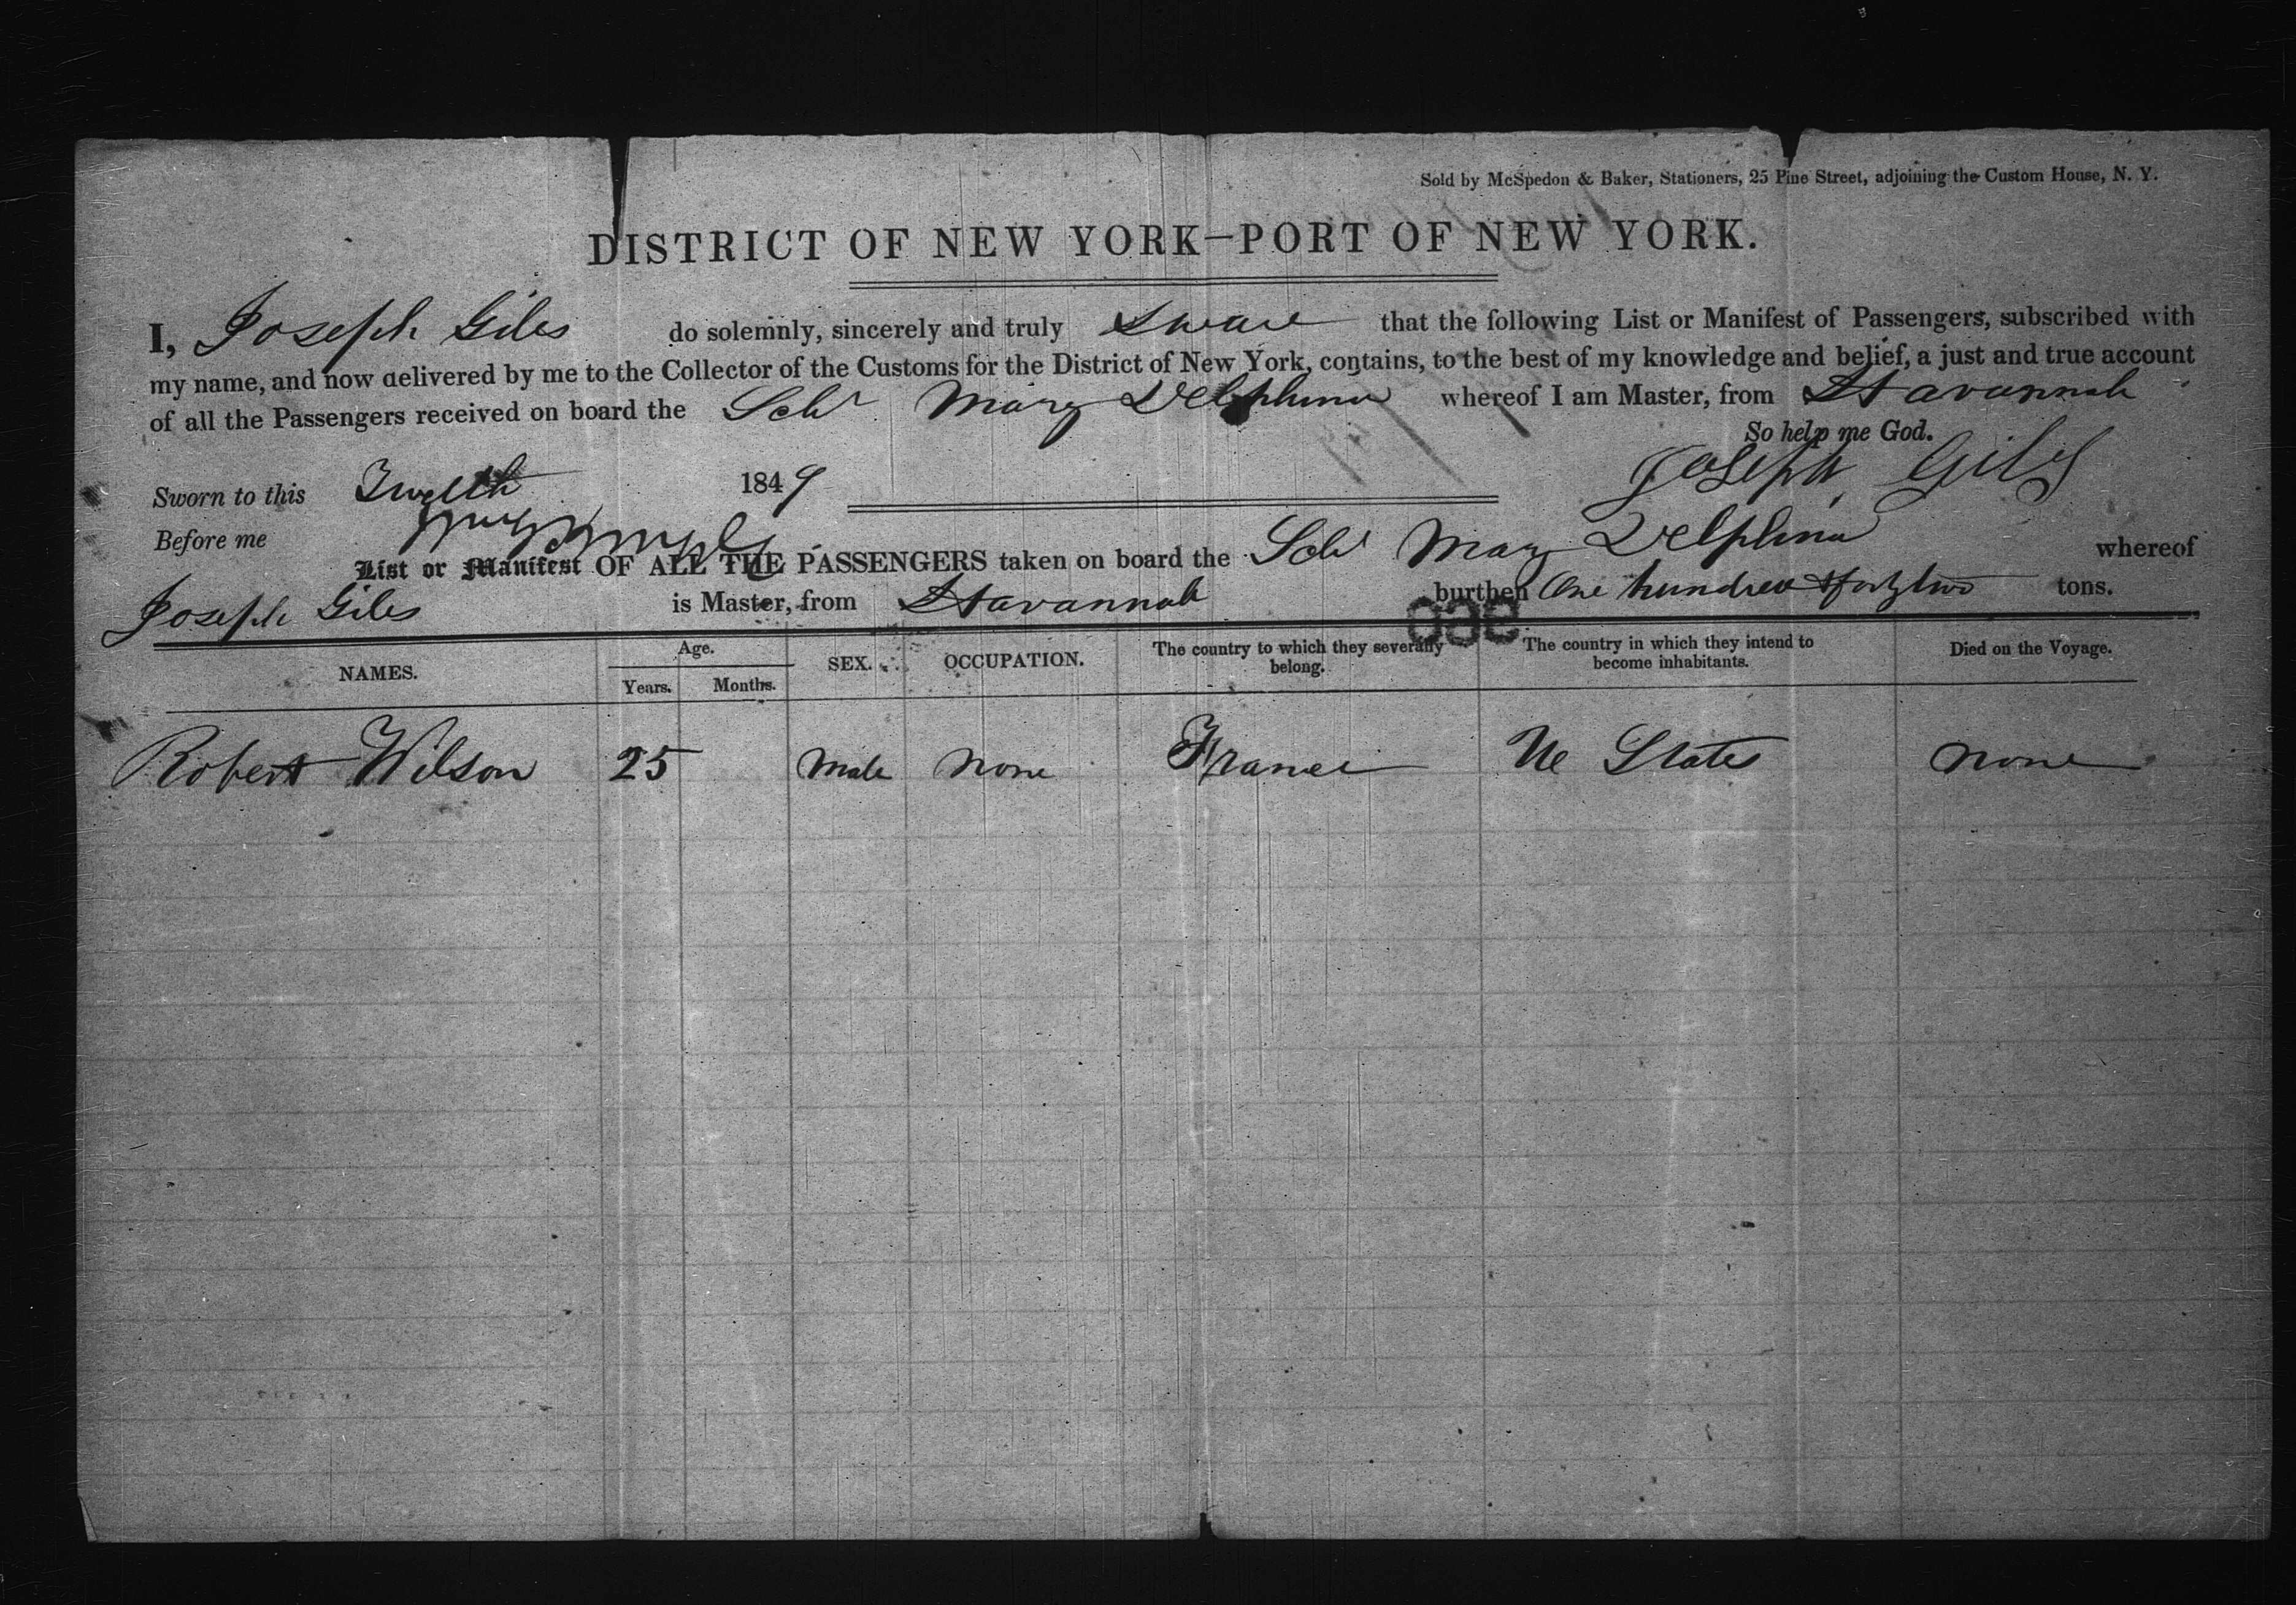 Sold by McSpedon & Baker, Stationers, 25 Pine Street, adjoining the Custom House, N. Y.
DISTRICT OF NEW YORK—PORT OF NEW YORK.
I, Joseph Giles do solemnly, sincerely and truly Sware that the following List or Manifest of Passengers, subscribed with
my name, and now delivered by me to the Collector of the Customs for the District of New York, contains, to the best of my knowledge and belief, a just and true account
of all the Passengers received on board the Schr Mary Delphina whereof I am Master, from Havannah
So help me God.
Sworn to this Twelth 1849 Joseph Giles
Before me
List or Manifest OF ALL THE PASSENGERS taken on board the Schr Mary Delphina whereof
Joseph Giles is Master, from Havannah burthen One hundred & forty two tons.
NAMES. Age. Years. Months. SEX. OCCUPATION. The country to which they severally belong. The country in which they intend to become inhabitants. Died on the Voyage.
Robert Wilson 25 Male None France Ue States None